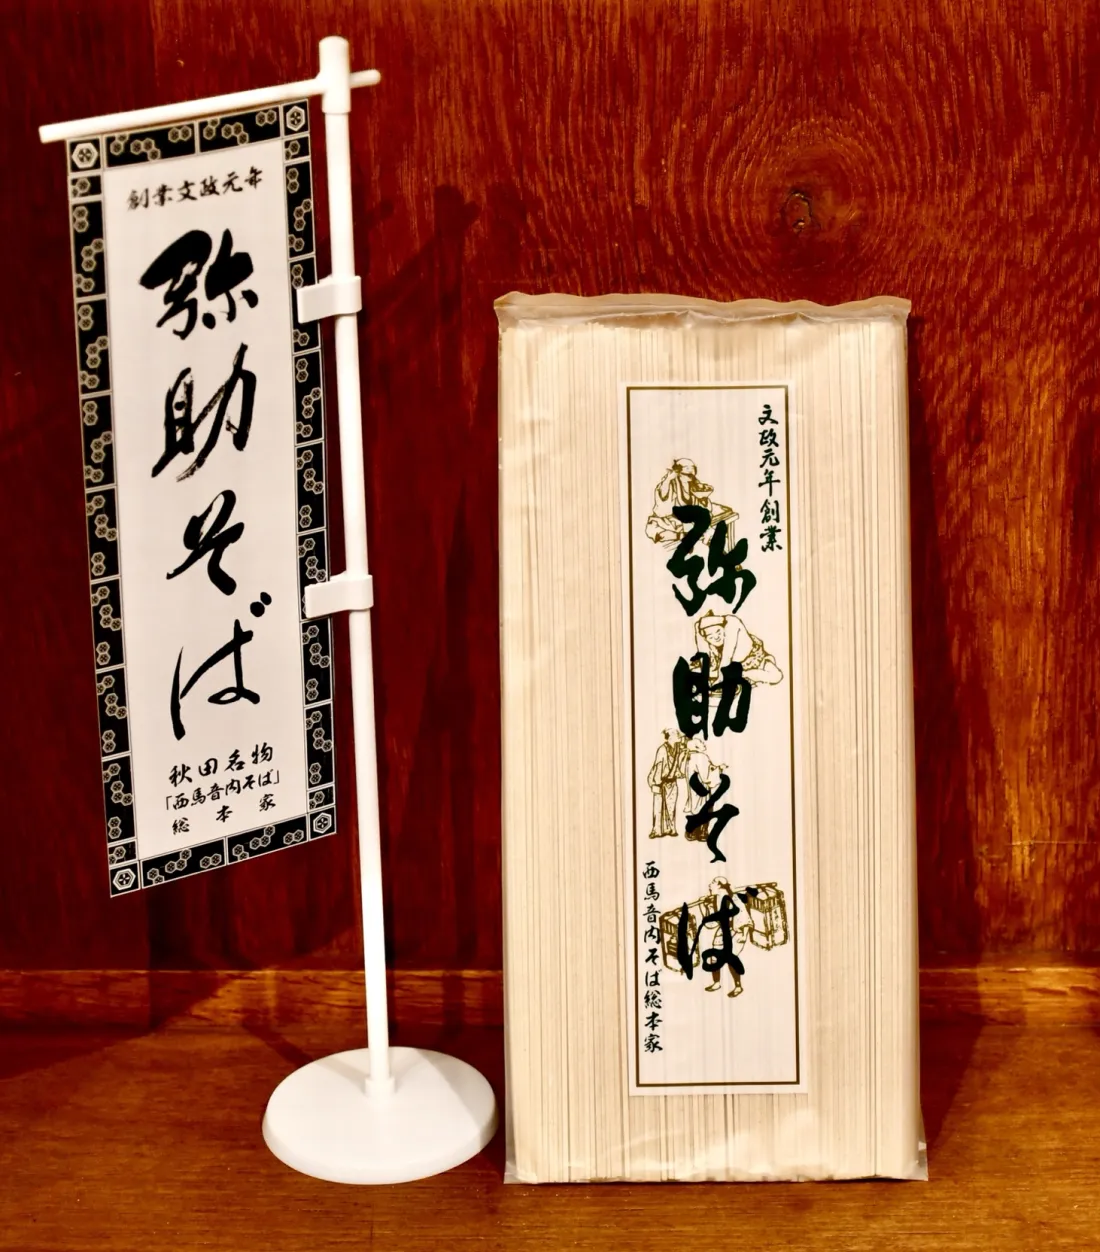 創業文政元年
弥助そば
秋田名物
「西馬音内そば」
総本家
文政元年創業
弥助そば
西馬音内そば総本家